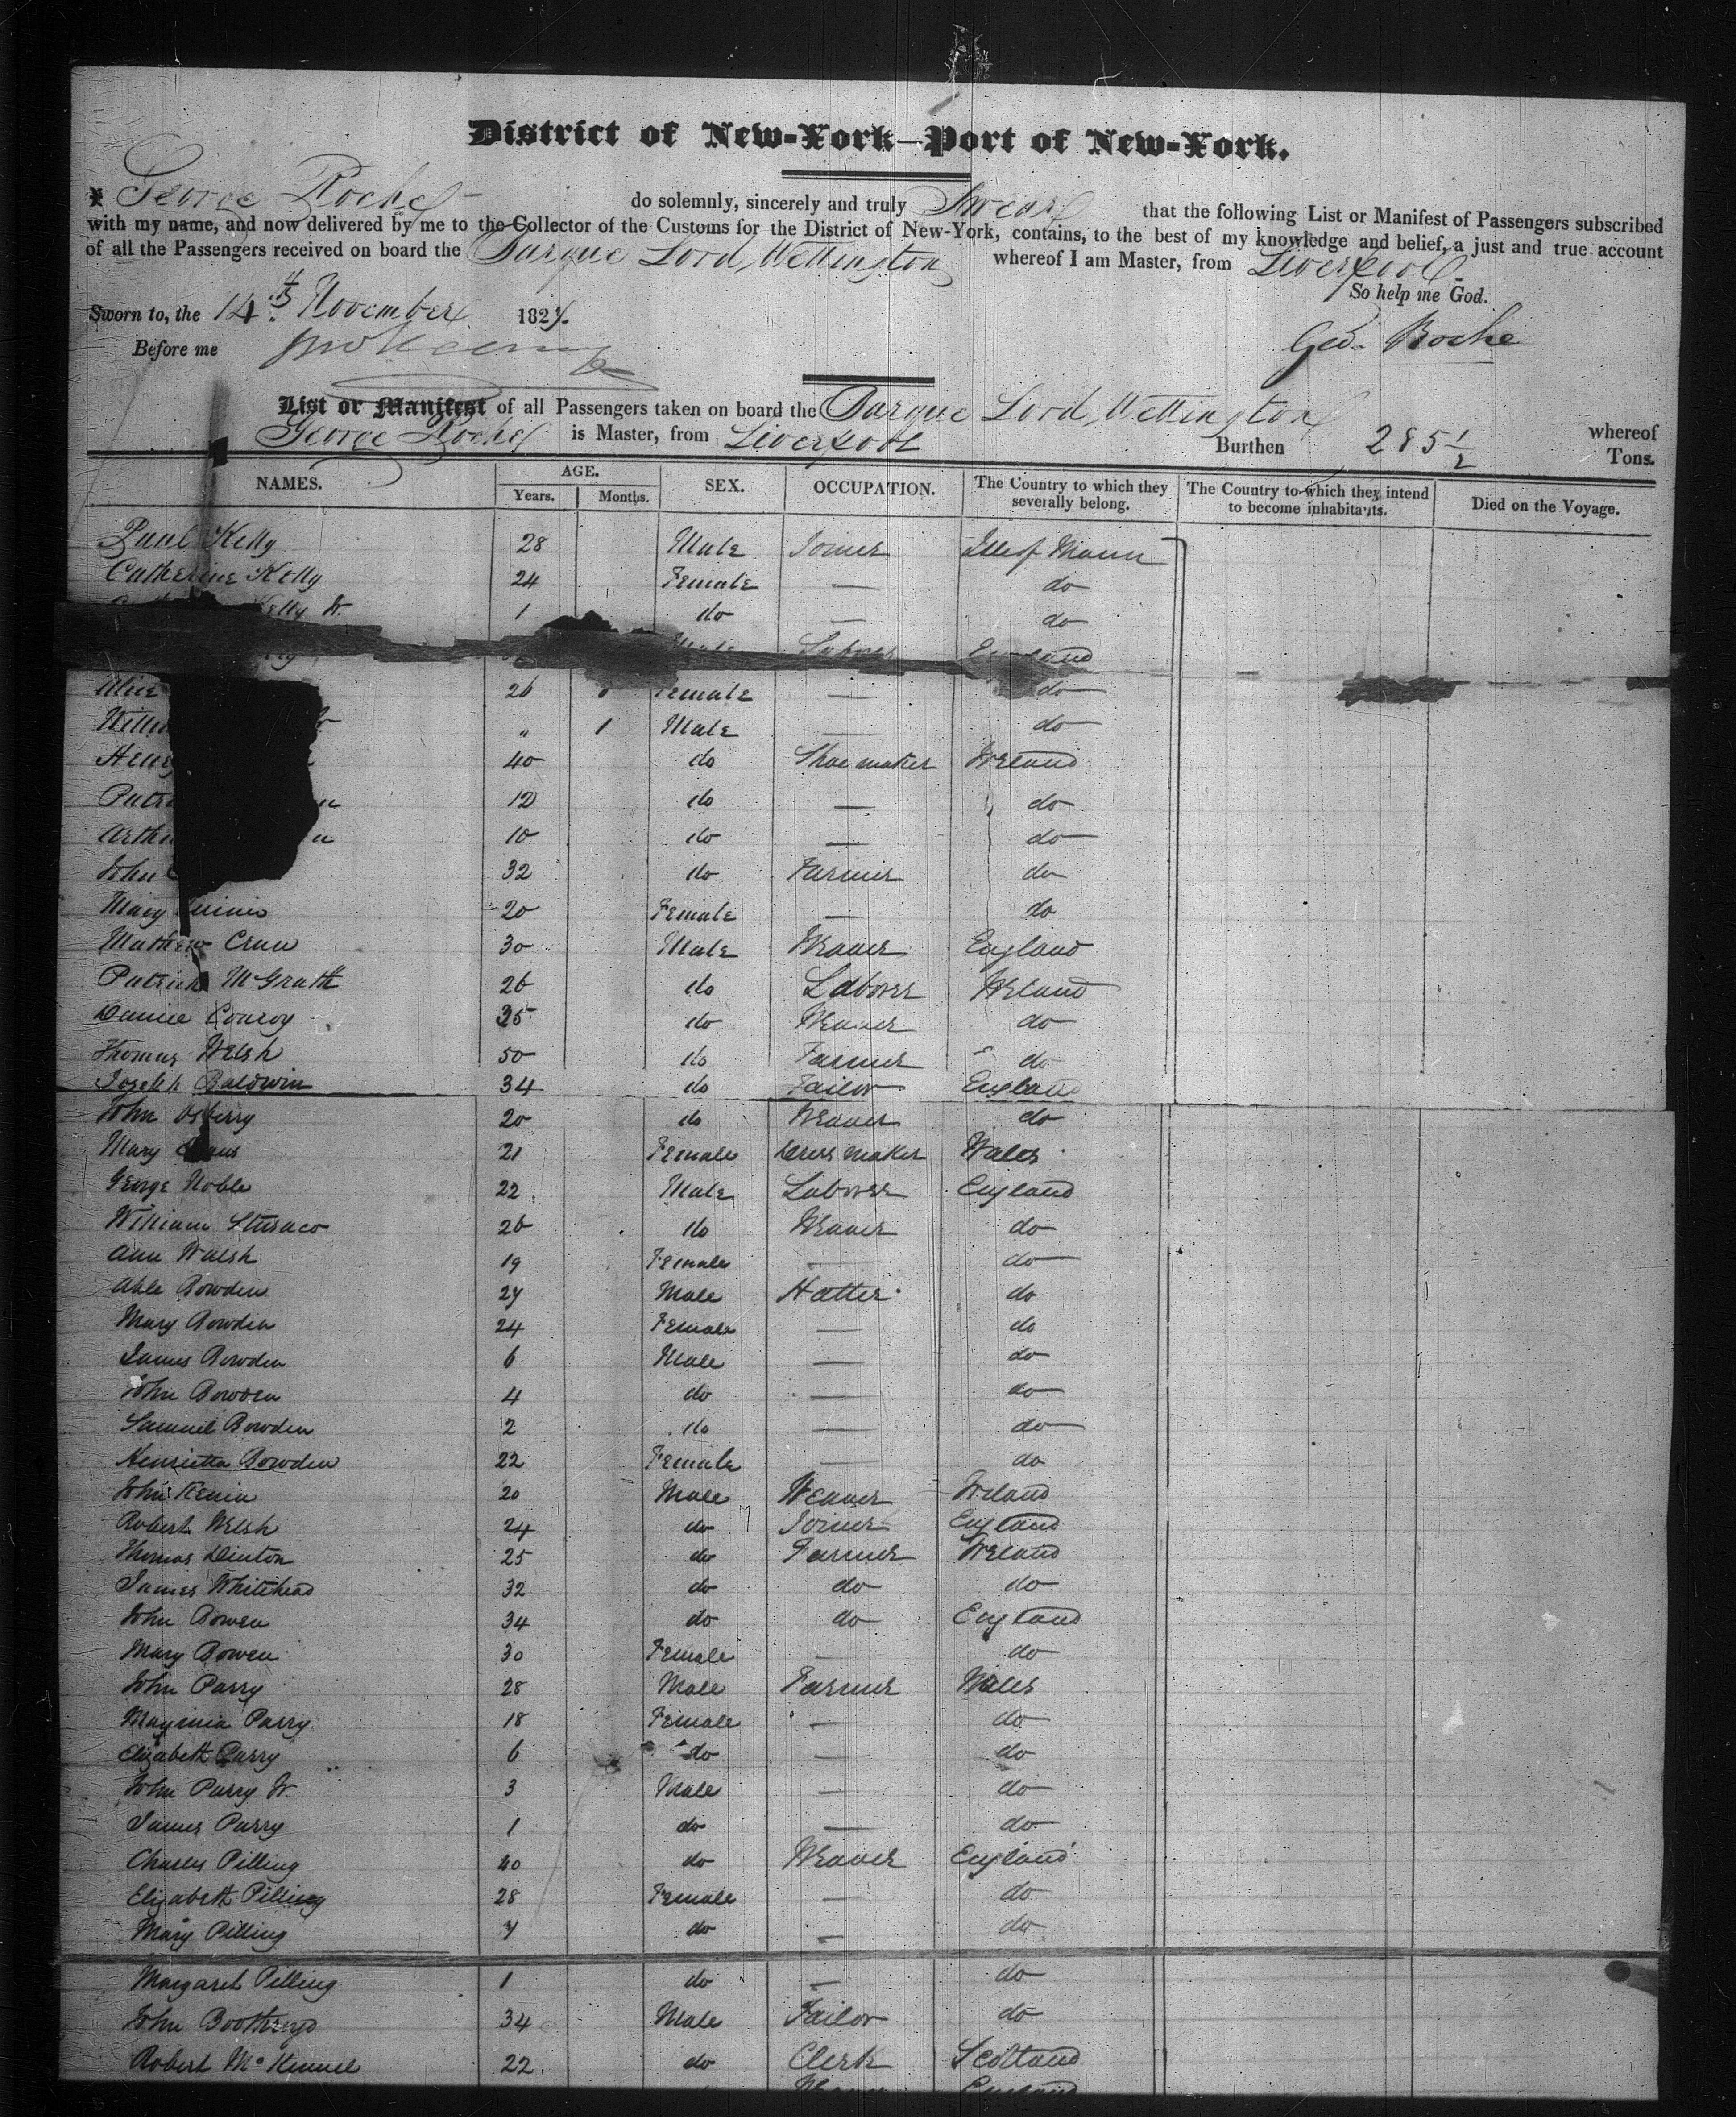 District of New-York—Port of New-York.
I George Roche do solemnly, sincerely and truly Swear that the following List or Manifest of Passengers subscribed
with my name, and now delivered by me to the Collector of the Customs for the District of New-York, contains, to the best of my knowledge and belief, a just and true account
of all the Passengers received on board the Barque Lord Wellington whereof I am Master, from Liverpool
So help me God.
Sworn to, the 14th November 1827.
Geo. Roche
Before me
List or Manifest of all Passengers taken on board the Barque Lord Wellington whereof
George Roche is Master, from Liverpool Burthen 285 1/2 Tons.
NAMES. AGE. Years. Months. SEX. OCCUPATION. The Country to which they severally belong. The Country to which they intend to become inhabitants. Died on the Voyage.
Paul Kelly 28 Male Joiner Isle of Mann
Catherine Kelly 24 Female — do
Kelly Jr. 1 do — do
Male Labour England
Alice 26 Female — do
" 1 Male — do
40 do Shoemaker Ireland
12 do — do
10 do — do
John 32 do Farmer do
Mary 20 Female — do
Mathew Crew 30 Male Weaver England
Patrick McGrath 26 do Laborer Ireland
Daniel Conroy 35 do Weaver do
Thomas Welsh 50 do Farmer do
Joseph Baldwin 34 do Tailor England
John Osberry 20 do Weaver do
Mary 21 Female Dress maker Wales
George Noble 22 Male Laborer England
William 26 do Weaver do
Ann Walsh 19 Female — do
Able Bowden 27 Male Hatter do
Mary Bowden 24 Female — do
James Bowden 6 Male — do
John Bowden 4 do — do
Samuel Bowden 2 do — do
Henrietta Bowden 22 Female — do
John 20 Male Weaver Ireland
Robert Welsh 24 do Joiner England
Thomas Dinton 25 do Farmer Ireland
James Whitehead 32 do do do
John Bowen 34 do do England
Mary Bowen 30 Female — do
John Parry 28 Male Farmer Wales
Parry 18 Female — do
Elizabeth Parry 6 do — do
John Parry Jr. 3 Male — do
James Parry 1 do — do
Charles Pilling 40 do Weaver England
Elizabeth Pilling 28 Female — do
Mary Pilling 7 do — do
Margaret Pilling 1 do — do
John Boothroyd 34 Male Tailor do
Robert McKennel 22 do Clerk Scotland